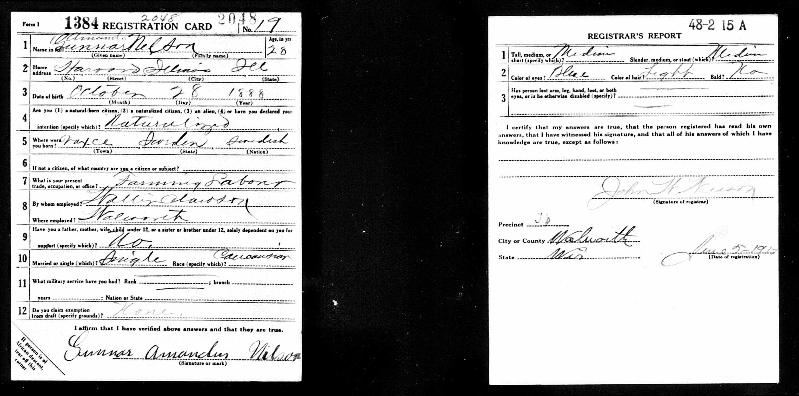 Form 1 1384 REGISTRATION CARD 2048 2048 No. 19
1 Name in full Gunnar Nelson Age, in yrs. 28
(Given name) (Family name)
2 Home address Ill
(No.) (Street) (City) (State)
3 Date of birth October 28 1888
(Month) (Day) (Year)
4 Are you (1) a natural-born citizen, (2) a naturalized citizen, (3) an alien, (4) or have you declared your
intention (specify which)? Naturalized
5 Where were you born? Sweden Swedish
(Town) (State) (Nation)
6 If not a citizen, of what country are you a citizen or subject?
7 What is your present trade, occupation, or office? Farming Labor
8 By whom employed?
Where employed? Walworth
9 Have you a father, mother, wife, child under 12, or a sister or brother under 12, solely dependent on you for
support (specify which)? No.
10 Married or single (which)? Single Race (specify which)? Caucasian
11 What military service have you had? Rank ; branch
years ; Nation or State
12 Do you claim exemption from draft (specify grounds)? None
I affirm that I have verified above answers and that they are true.
Gunnar Amandus Nelson
(Signature or mark)
If person is of African descent, tear off this corner
48-2 15 A
REGISTRAR'S REPORT
1 Tall, medium, or short (specify which)? Medium Slender, medium, or stout (which)? Medium
2 Color of eyes? Blue Color of hair? Light Bald? No
3 Has person lost arm, leg, hand, foot, or both
eyes, or is he otherwise disabled (specify)?
I certify that my answers are true, that the person registered has read his own
answers, that I have witnessed his signature, and that all of his answers of which I have
knowledge are true, except as follows:
John H.
(Signature of registrar)
Precinct
City or County Walworth
State Wis June 5-1917
(Date of registration)